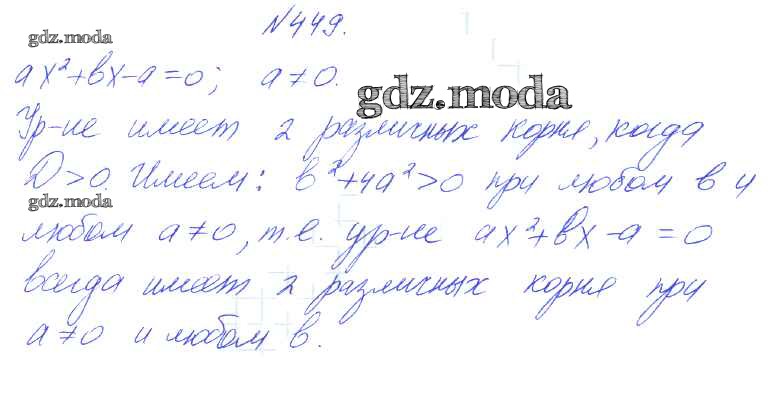 N449.
gdz.moda
ax²+вx-a=0; a≠0.
gdz.moda
Ур-ие имеет 2 различных корня, когда
D>0. Имеем: в²+4a²>0 при любом в и
gdz.moda
любом a≠0, т.е. ур-ие ax²+вx-a=0
всегда имеет 2 различных корня при
a≠0 и любом в.